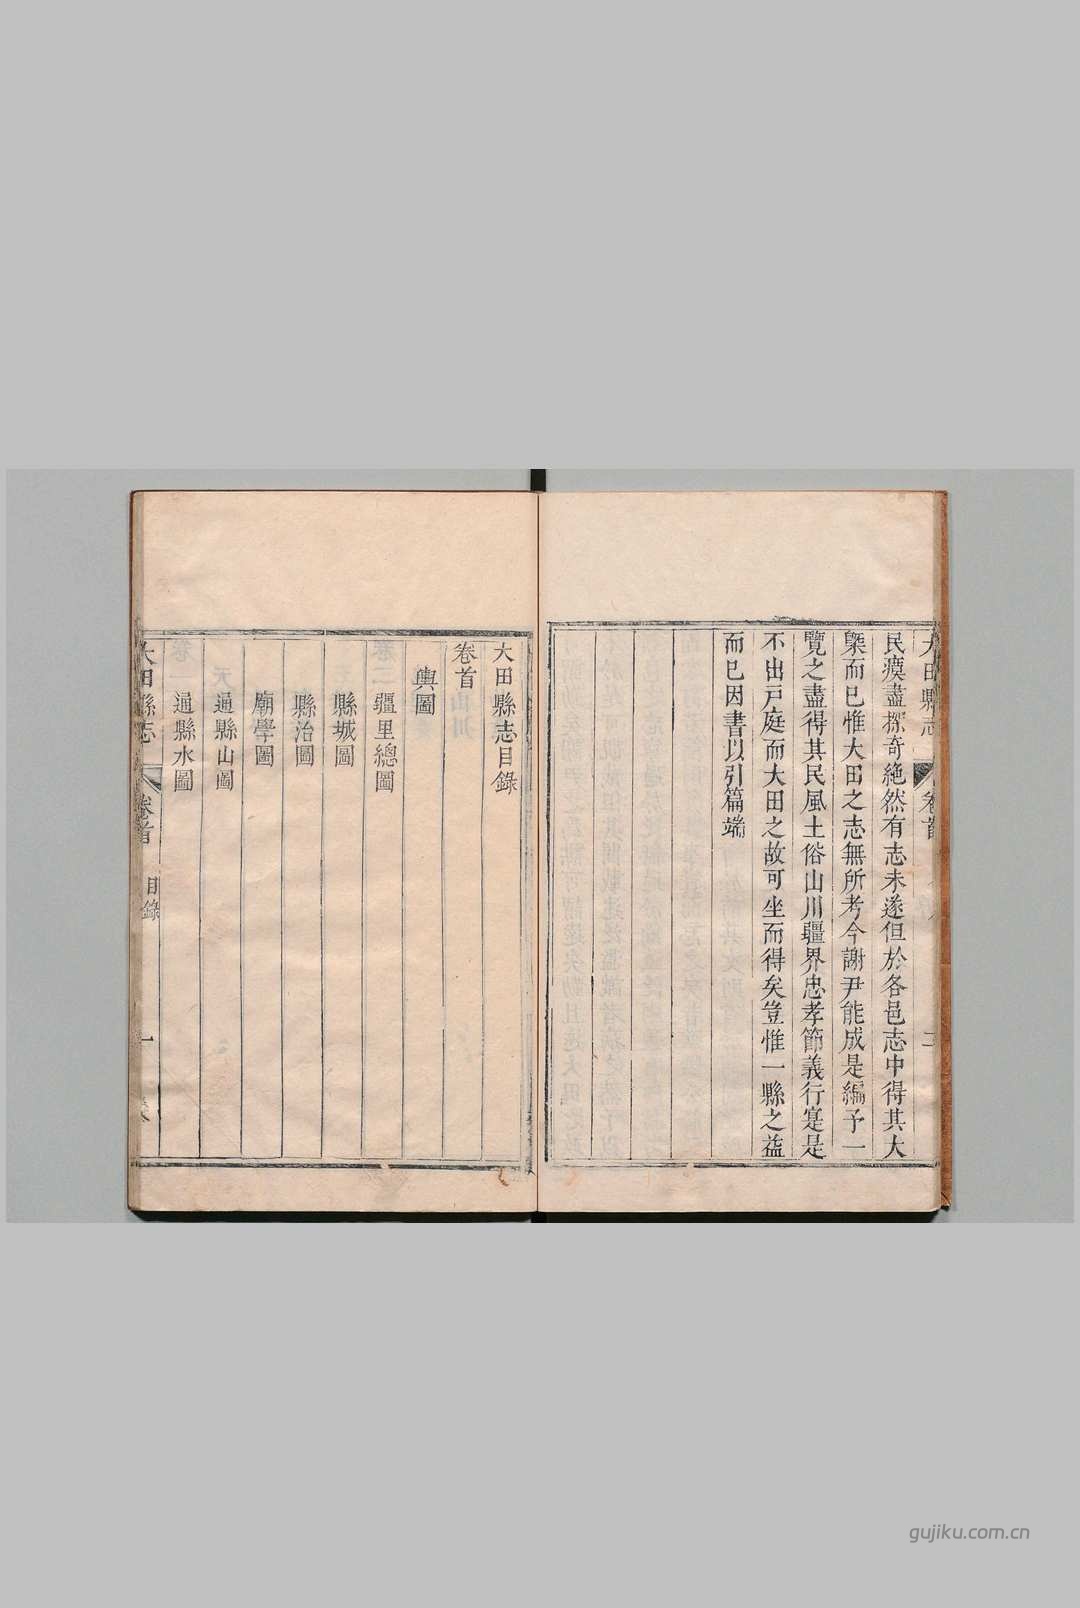 大田縣志
卷首
三
民瘼盡探奇絶然有志未遂但於各邑志中得其大
槩而已惟大田之志無所考今謝尹能成是編予一
覽之盡得其民風土俗山川疆界忠孝節義行寔是
不出戸庭而大田之故可坐而得矣豈惟一縣之益
而已因書以引篇端
大田縣志目錄
卷首
輿圖
疆里總圖
縣城圖
縣治圖
廟學圖
通縣山圖
通縣水圖
大田縣志
卷首
目錄
一
gujiku.com.cn